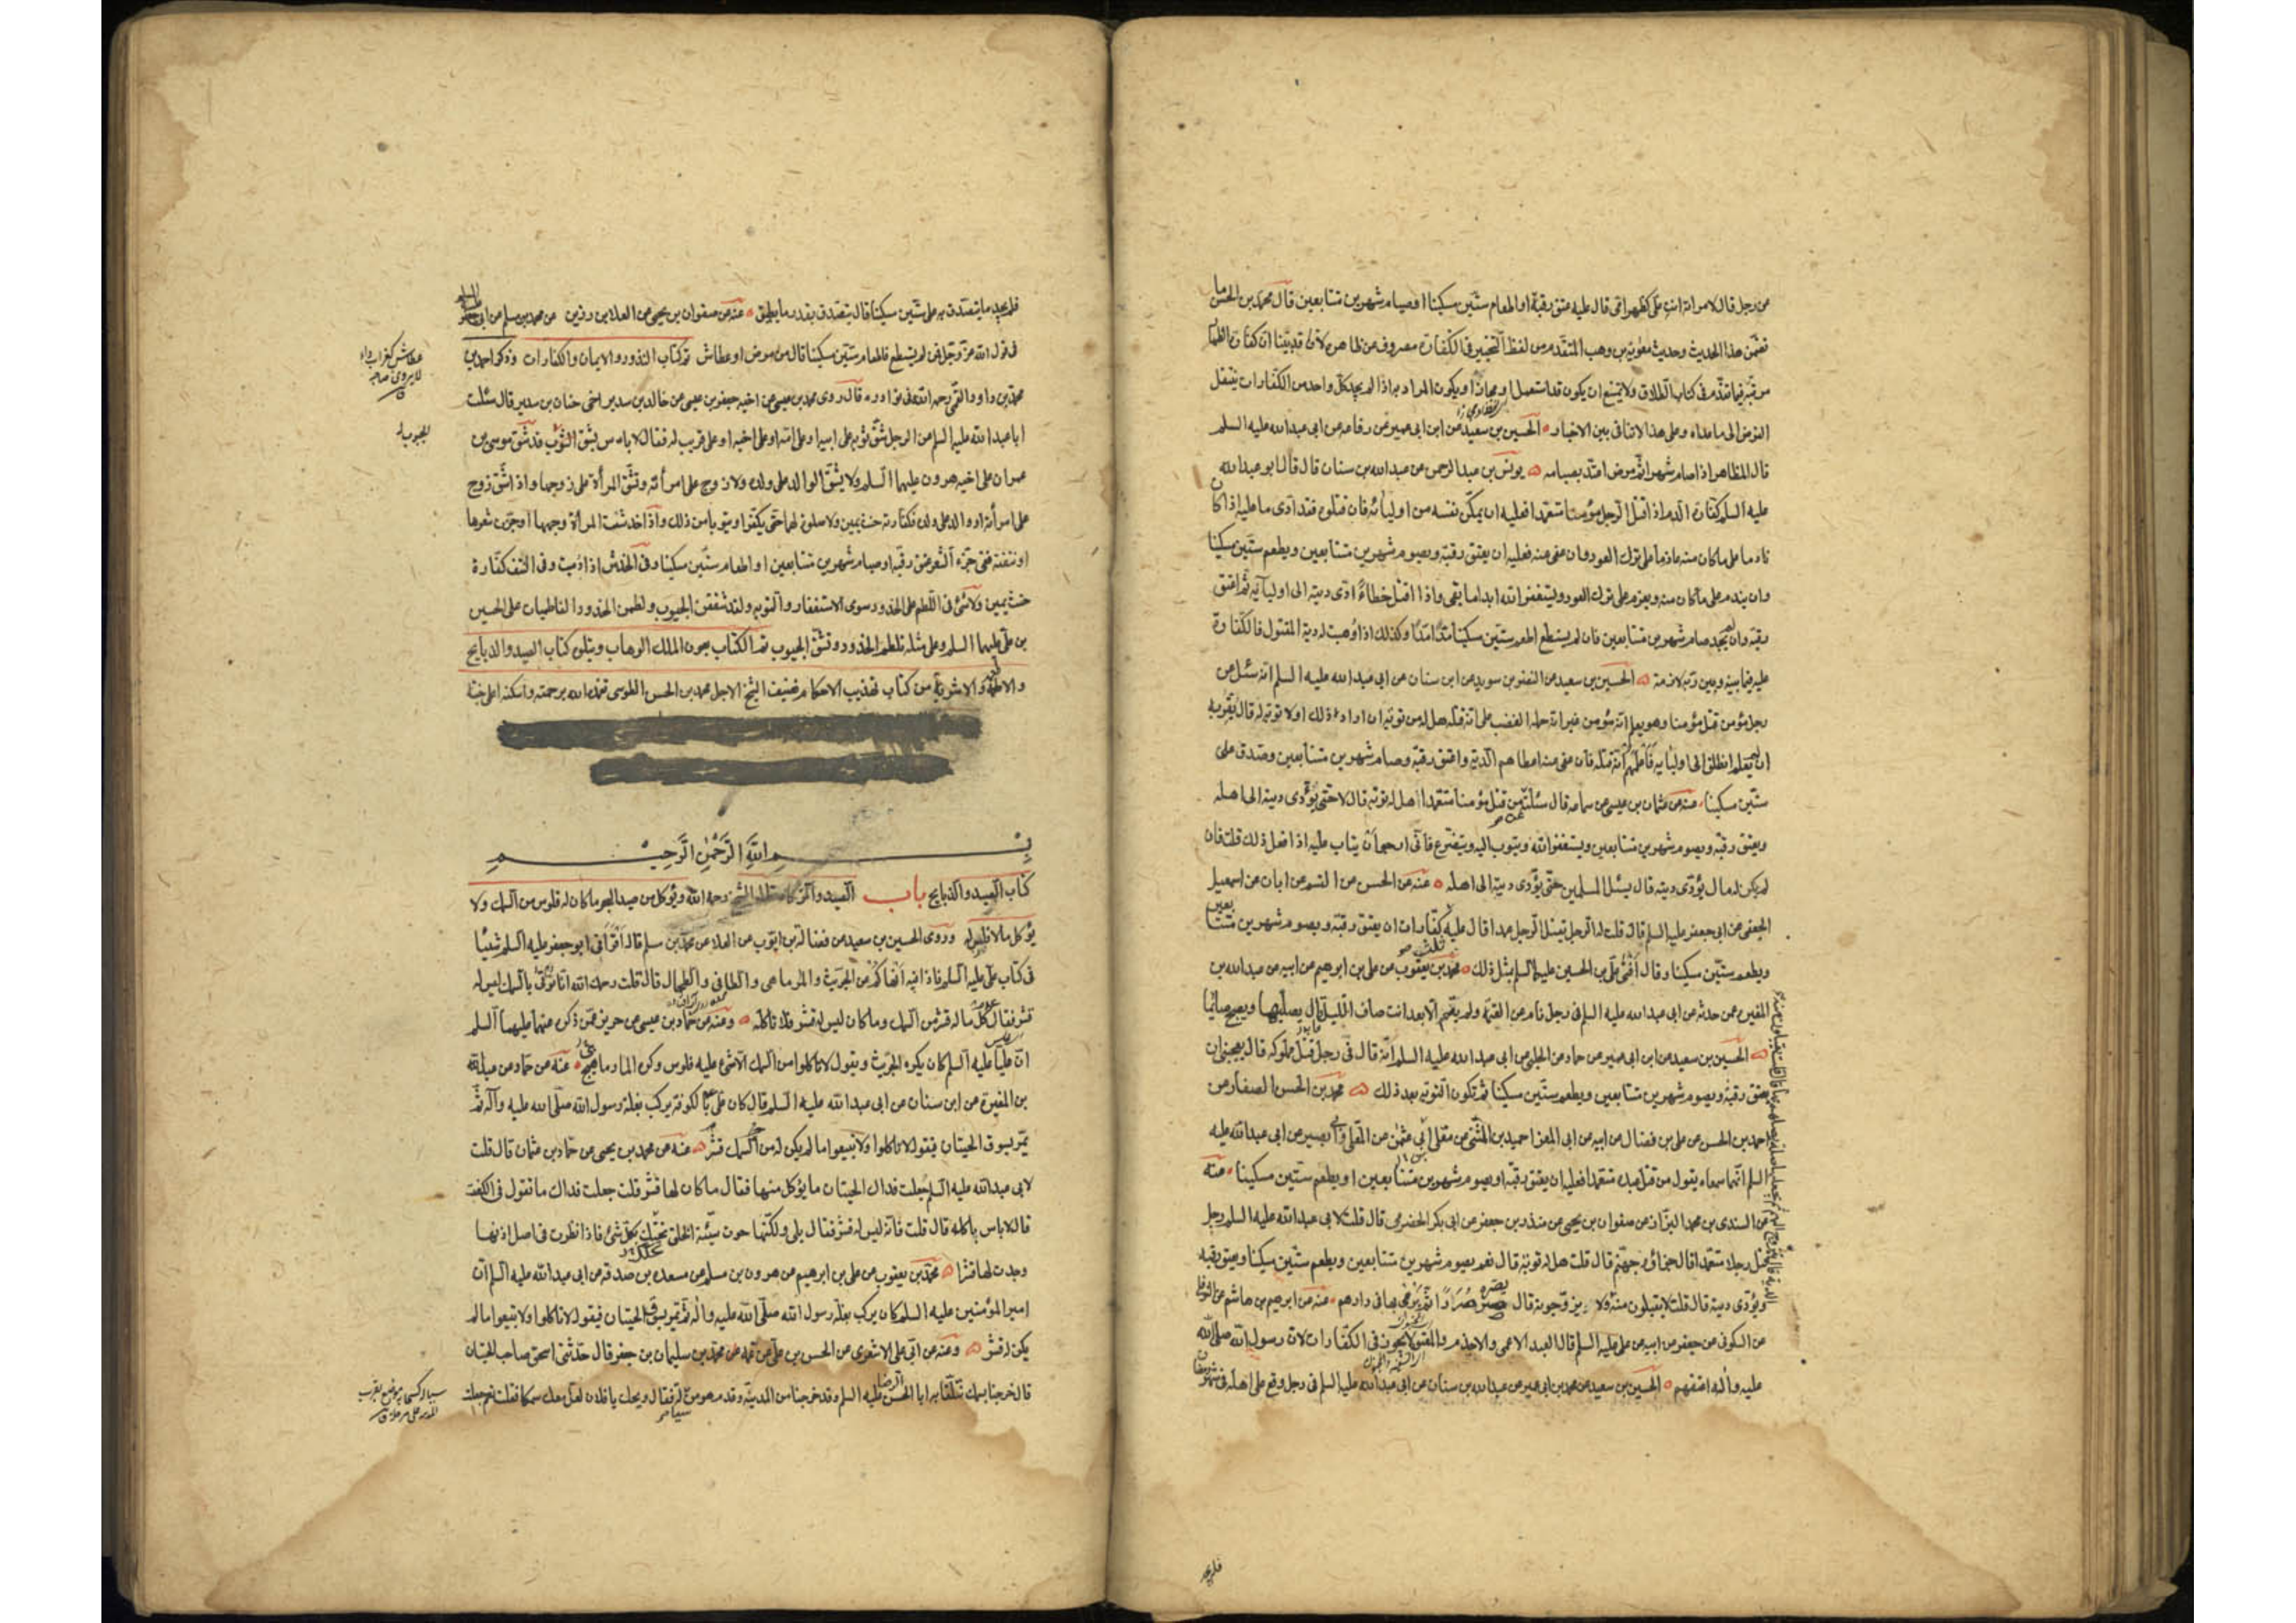 من رجل قال لامراته انت علیّ کظهر امّی قال علیه عتق رقبة او اطعام ستّین مسکینا او صیام شهرین متتابعین قال محمّد بن الحسن ما
تضمّن هذا الحدیث وحدیث معویة بن وهب المتقدّم من لفظ التخییر فی الکفّارة مصروف عن ظاهره لانّا قد بیّنا انّ کفّارة الظهار
مرتّبة فیما تقدّم فی کتاب الطلاق ولا یمتنع ان یکون قد استعمل او مجازا ویکون المراد به اذا لم یجد کلّ واحد من الکفّارات ینتقل
الفرض الی ما عداه وعلی هذا لا تنافی بین الاخبار الحسین بن سعید عن ابن ابی عمیر عن رفاعه عن ابی عبدالله علیه السلم
قال المظاهر اذا صام شهرا ثمّ مرض اعتدّ بصیامه یونس بن عبد الرحمن عن عبدالله بن سنان قال قال ابو عبدالله
علیه السلم کفّارة الدم اذا قتل الرجل مؤمنا متعمّدا فعلیه ان یمکّن نفسه من اولیائه فان قتلوه فقد ادّی ما علیه اذا کان
نادما علی ما کان منه عازما علی ترک العود وان عفی عنه فعلیه ان یعتق رقبة ویصوم شهرین متتابعین ویطعم ستّین مسکینا
وان یندم علی ما کان منه ویعزم علی ترک العود ویستغفر الله ابدا ما بقی واذا قتل خطاءً ادّی دیته الی اولیآئه ثمّ اعتق
رقبة وان لم یجد صام شهرین متتابعین فان لم یستطع اطعم ستّین مسکینا مدّا مدّا وکذلک اذا وُهبت له دیة المقتول فالکفّارة
علیه فیما بینه وبین ربّه لازمة الحسین بن سعید عن النضر بن سوید عن ابن سنان عن ابی عبدالله علیه السلم انّه سئل عن
رجل مؤمن قتل مؤمنا وهو یعلم انّه مؤمن غیر انّه حمله الغضب علی انّه قتله هل له من توبة ان اراد ذلک او لا توبة له قال یُقرّ به
ان لم یعلم انطلق الی اولیآئه فاعلمهم انّه قتله فان عفی عنه اعطاهم الدیة واعتق رقبة وصام شهرین متتابعین وصدق علی
ستّین مسکینا عنه عن عثمان بن عیسی عن سماعه قال سئلته عمّن قتل مؤمنا متعمّدا هل له توبة قال لا حتّی یؤدّی دیته الی اهله
ویعتق رقبة ویصوم شهرین متتابعین ویستغفر الله ویتوب الیه ویتضرّع فانّی ارجو ان یتاب علیه اذا فعل ذلک قلت فان
لم یکن له مال یؤدّی دیته قال یسئل المسلمین حتّی یؤدّی دیته الی اهله عنه عن الحسن عن القسم عن ابان عن اسمعیل
الجعفی عن ابی جعفر علیه السلم قال قلت له الرجل یقتل الرجل عمدا قال علیه ثلث کفّارات ان یعتق رقبة ویصوم شهرین متتابعین
ویطعم ستّین مسکینا وقال افتی علیّ بن الحسین علیهما السلم بمثل ذلک محمّد بن یعقوب عن علی بن ابرهیم عن ابیه عن عبدالله بن
المغیرة عمّن حدثه عن ابی عبدالله علیه السلم فی رجل نام عن العتمة ولم یقم الّا بعد انتصاف اللیل قال یصلّیها ویصبح صائما
الحسین بن سعید عن ابن ابی عمیر عن حماد عن الحلبی عن ابی عبدالله علیه السلم انّه قال فی رجل قتل مملوکه قال یعجبنی ان
یعتق رقبة ویصوم شهرین متتابعین ویطعم ستّین مسکینا ثمّ تکون التوبة بعد ذلک محمّد بن الحسن الصفار عن
احمد بن الحسن عن علی بن فضال عن ابیه عن ابی المغرا حمید بن المثنّی عن معلّی ابی عثمن عن المعلّی وابی بصیر عن ابی عبدالله علیه
السلم انّهما سمعاه یقول من قتل عبده متعمّدا فعلیه ان یعتق رقبة او یصوم شهرین متتابعین او یطعم ستّین مسکینا عنه
عن السندی بن محمد البزّاز عن صفوان بن یحیی عن منذر بن جعفر عن ابی بکر الحضرمی قال قلت لابی عبدالله علیه السلم رجل
قتل رجلا متعمّدا قال جزاؤه جهنّم قال قلت هل له توبة قال نعم یصوم شهرین متتابعین ویطعم ستّین مسکینا ویعتق رقبة
ویؤدّی دیته قال قلت لا یقبلون منه قال یزوّجونه قال عنه عن ابرهیم بن هاشم عن النوفلی
عن السکونی عن جعفر عن ابیه عن علی علیه السلم قال العبد الاعمی والاجذم والمعتوه لا یجوز فی الکفّارات لانّ رسول الله صلّی الله
علیه وآله اعتقهم الحسین بن سعید عن محمد بن ابی عمیر عن عبدالله بن سنان عن ابی عبدالله علیه السلم فی رجل وقع علی اهله فی شهر رمضان
فلم یجد
فلم یجد ما یتصدّق به علی ستّین مسکینا قال یتصدّق بقدر ما یطیق عنه عن صفوان بن یحیی عن العلا بن رزین عن محمد بن مسلم عن ابی جعفر علیه السلم
فی قول الله عزّ وجلّ فمن لم یستطع فاطعام ستّین مسکینا قال من مرض او عطاش تم کتاب النذور والایمان والکفارات وذکر احمد بن
محمّد بن داود القمّی رحمه الله فی نوادره قال روی محمد بن عیسی عن اخیه جعفر بن عیسی عن خالد بن سدیر اخی حنان بن سدیر قال سئلت
ابا عبدالله علیه السلم عن الرجل شقّ ثوبه علی ابیه او علی امّه او علی اخیه او علی قریب له فقال لا باس بشقّ الثوب قد شقّ موسی بن
عمران علی اخیه هرون علیهما السلم ولا یشقّ الوالد علی ولده ولا زوج علی امرأته وتشقّ المرأة علی زوجها واذا شقّ زوج
علی امرأته او والد علی ولده فکفّارته حنث یمین ولا صلوة لهما حتّی یکفّرا ویتوبا من ذلک واذا خدشت المرأة وجهها او جزّت شعرها
او نتفته ففی جزّ الشعر عتق رقبة او صیام شهرین متتابعین او اطعام ستّین مسکینا وفی الخدش اذا ادمیت وفی النتف کفّارة
حنث یمین ولا شئ فی اللطم علی الخدود سوی الاستغفار والتوبه ولقد شققن الجیوب ولطمن الخدود الفاطمیات علی الحسین
بن علی علیهما السلم وعلی مثله تلطم الخدود وتشقّ الجیوب تم الکتاب بعون الملک الوهاب ویتلوه کتاب الصید والذبایح
والاطعمة والاشربة من کتاب تهذیب الاحکام تصنیف الشیخ الاجل محمد بن الحسن الطوسی تغمّده الله برحمته واسکنه اعلی جنته
بسم الله الرَّحْمٰنِ الرَّحِیم
کتاب الصید والذبایح باب الصید والذکاة قال الشیخ رحمه الله ویؤکل من صید البحر ما کان له فلوس من السمک ولا
یؤکل ما لا فلس له وروی الحسین بن سعید عن فضالة بن ایّوب عن العلا عن محمّد بن مسلم قال اقرأنی ابو جعفر علیه السلم شیئا
فی کتاب علی علیه السلم فاذا فیه انهاکم عن الجرّیث والمارماهی والطافی والطحال قال قلت رحمک الله انّا نؤتی بالسمک لیس له
قشر فقال کُل ما له قشر من السمک وما کان لیس له قشر فلا تاکله وعنه عن حمّاد بن عیسی عن حریز عمّن ذکره عنهما علیهما السلم
انّ علیّا علیه السلم کان یکره الجرّیث ویقول لا تاکلوا من السمک الّا شئ علیه فلوس وکره المارماهیج عنه عن حماد عن عبدالله
بن المغیرة عن ابن سنان عن ابی عبدالله علیه السلم قال کان علی بالکوفة یرکب بغلة رسول الله صلّی الله علیه وآله ثمّ
یمرّ بسوق الحیتان فیقول لا تاکلوا ولا تبیعوا ما لم یکن له من السمک قشر عنه عن محمد بن یحیی عن حمّاد بن عثمان قال قلت
لابی عبدالله علیه السلم جعلت فداک الحیتان ما یؤکل منها فقال ما کان لها قشر قلت جعلت فداک ما تقول فی الکنعت
قال لا باس باکله قال قلت فانّه لیس له قشر فقال بلی ولکنّها حوت سیّئة الخلق تحتک بکلّ شئ فاذا نظرت فی اصل اذنها
وجدت لها قشرا محمّد بن یعقوب عن علی بن ابرهیم عن هرون بن مسلم عن مسعده بن صدقه عن ابی عبدالله علیه السلم انّ
امیر المؤمنین علیه السلم کان یرکب بغلة رسول الله صلّی الله علیه واله ثمّ یمرّ بسوق الحیتان فیقول لا تاکلوا ولا تبیعوا ما لم
یکن له قشر وعنه عن ابی علی الاشعری عن الحسن بن علی عن عمّه محمّد بن سلیمان بن جعفر قال حدّثنی اسحق صاحب الحیتان
قال خرجنا بسمک نتلقّا به ابا الحسن الرضا علیه السلم وقد خرجنا من المدینة وقد قدم هو من سفر له فقال ویحک یا فلان لعلّ معک سمکا فقلت نعم جعلت